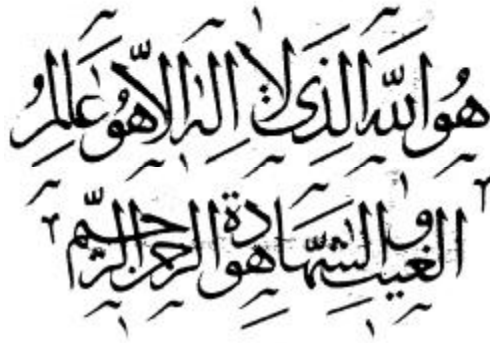 هُوَ اللّٰه الَّذِى لا اِلٰهَ اِلّا هُوَ عَالِمُ
الغيب و الشّهادة هو الرحمن الرّحيم